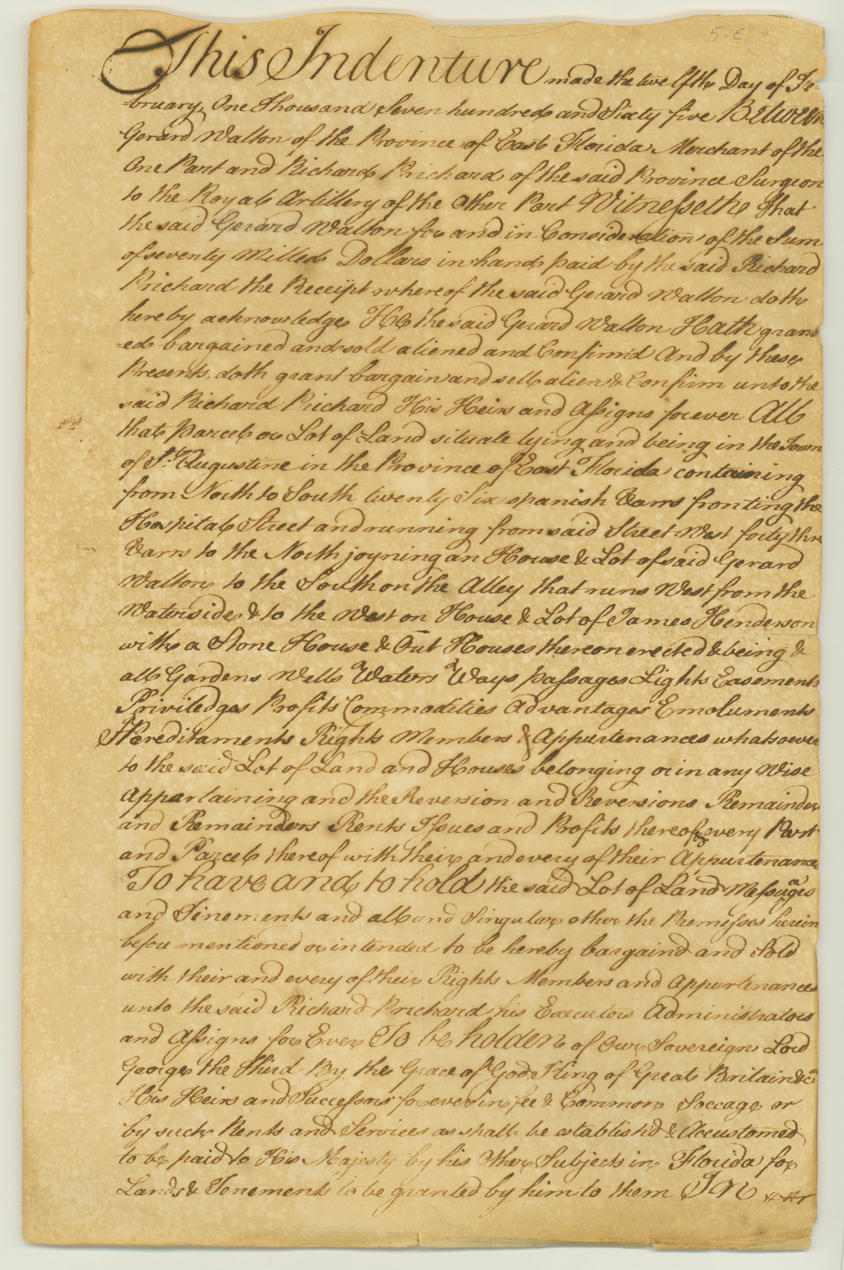 5-E
This Indenture made the twelfth Day of Fe-
bruary, One Thousand Seven hundred and Sixty five Between
Gerard Walton of the Province of East Florida Merchant of the
One Part and Richard Prichard of the said Province Surgeon
to the Royal Artillery of the Other Part Witnesseth That
the said Gerard Walton for and in Consideration of the Sum
of seventy Milled Dollars in hand paid by the said Richard
Prichard the Receipt whereof the said Gerard Walton doth
hereby acknowledge He the said Gerard Walton Hath grant
=ed bargained and sold aliened and Confirm'd And by these
Presents doth grant bargain and sell alien & Confirm unto the
said Richard Prichard His Heirs and Assigns forever All
that Parcel or Lot of Land situate lying and being in the Town
of St. Augustine in the Province of East Florida containing
from North to South twenty Six spanish Varrs fronting the
Hospital Street and running from said Street West forty three
Varrs to the North joyning an House & Lot of said Gerard
Walton to the South on the Alley that runs West from the
Waterside & to the West on House & Lot of James Henderson
with a Stone House & Out Houses thereon erected & being &
all Gardens Wells Waters Ways passages Lights Easements
Priviledges Profits Commodities Advantages Emoluments
Hereditaments Rights Members & Appurtenances whatsoever
to the said Lot of Land and Houses belonging or in any Wise
Appertaining and the Reversion and Reversions Remainder
and Remainders Rents Issues and Profits thereof every Part
and Parcel thereof with their and every of their Appurtenance
To have and to hold the said Lot of Land Messuages
and Tinements and all and Singular other the Premisses herein
before mentioned or intended to be hereby bargaind and Sold
with their and every of their Rights Members and Appurtenances
unto the said Richard Prichard his Executors Administrators
and Assigns for Ever To be holden of Our Sovereign Lord
George the Third By the Grace of God King of Great Britain &ca
His Heirs and Successors forever in fee & Common Soccage or
by such Rents and Services as shall be establishd & Accustomed
to be paid to His Majesty by his Other Subjects in Florida for
Lands & Tenements to be granted by him to them In